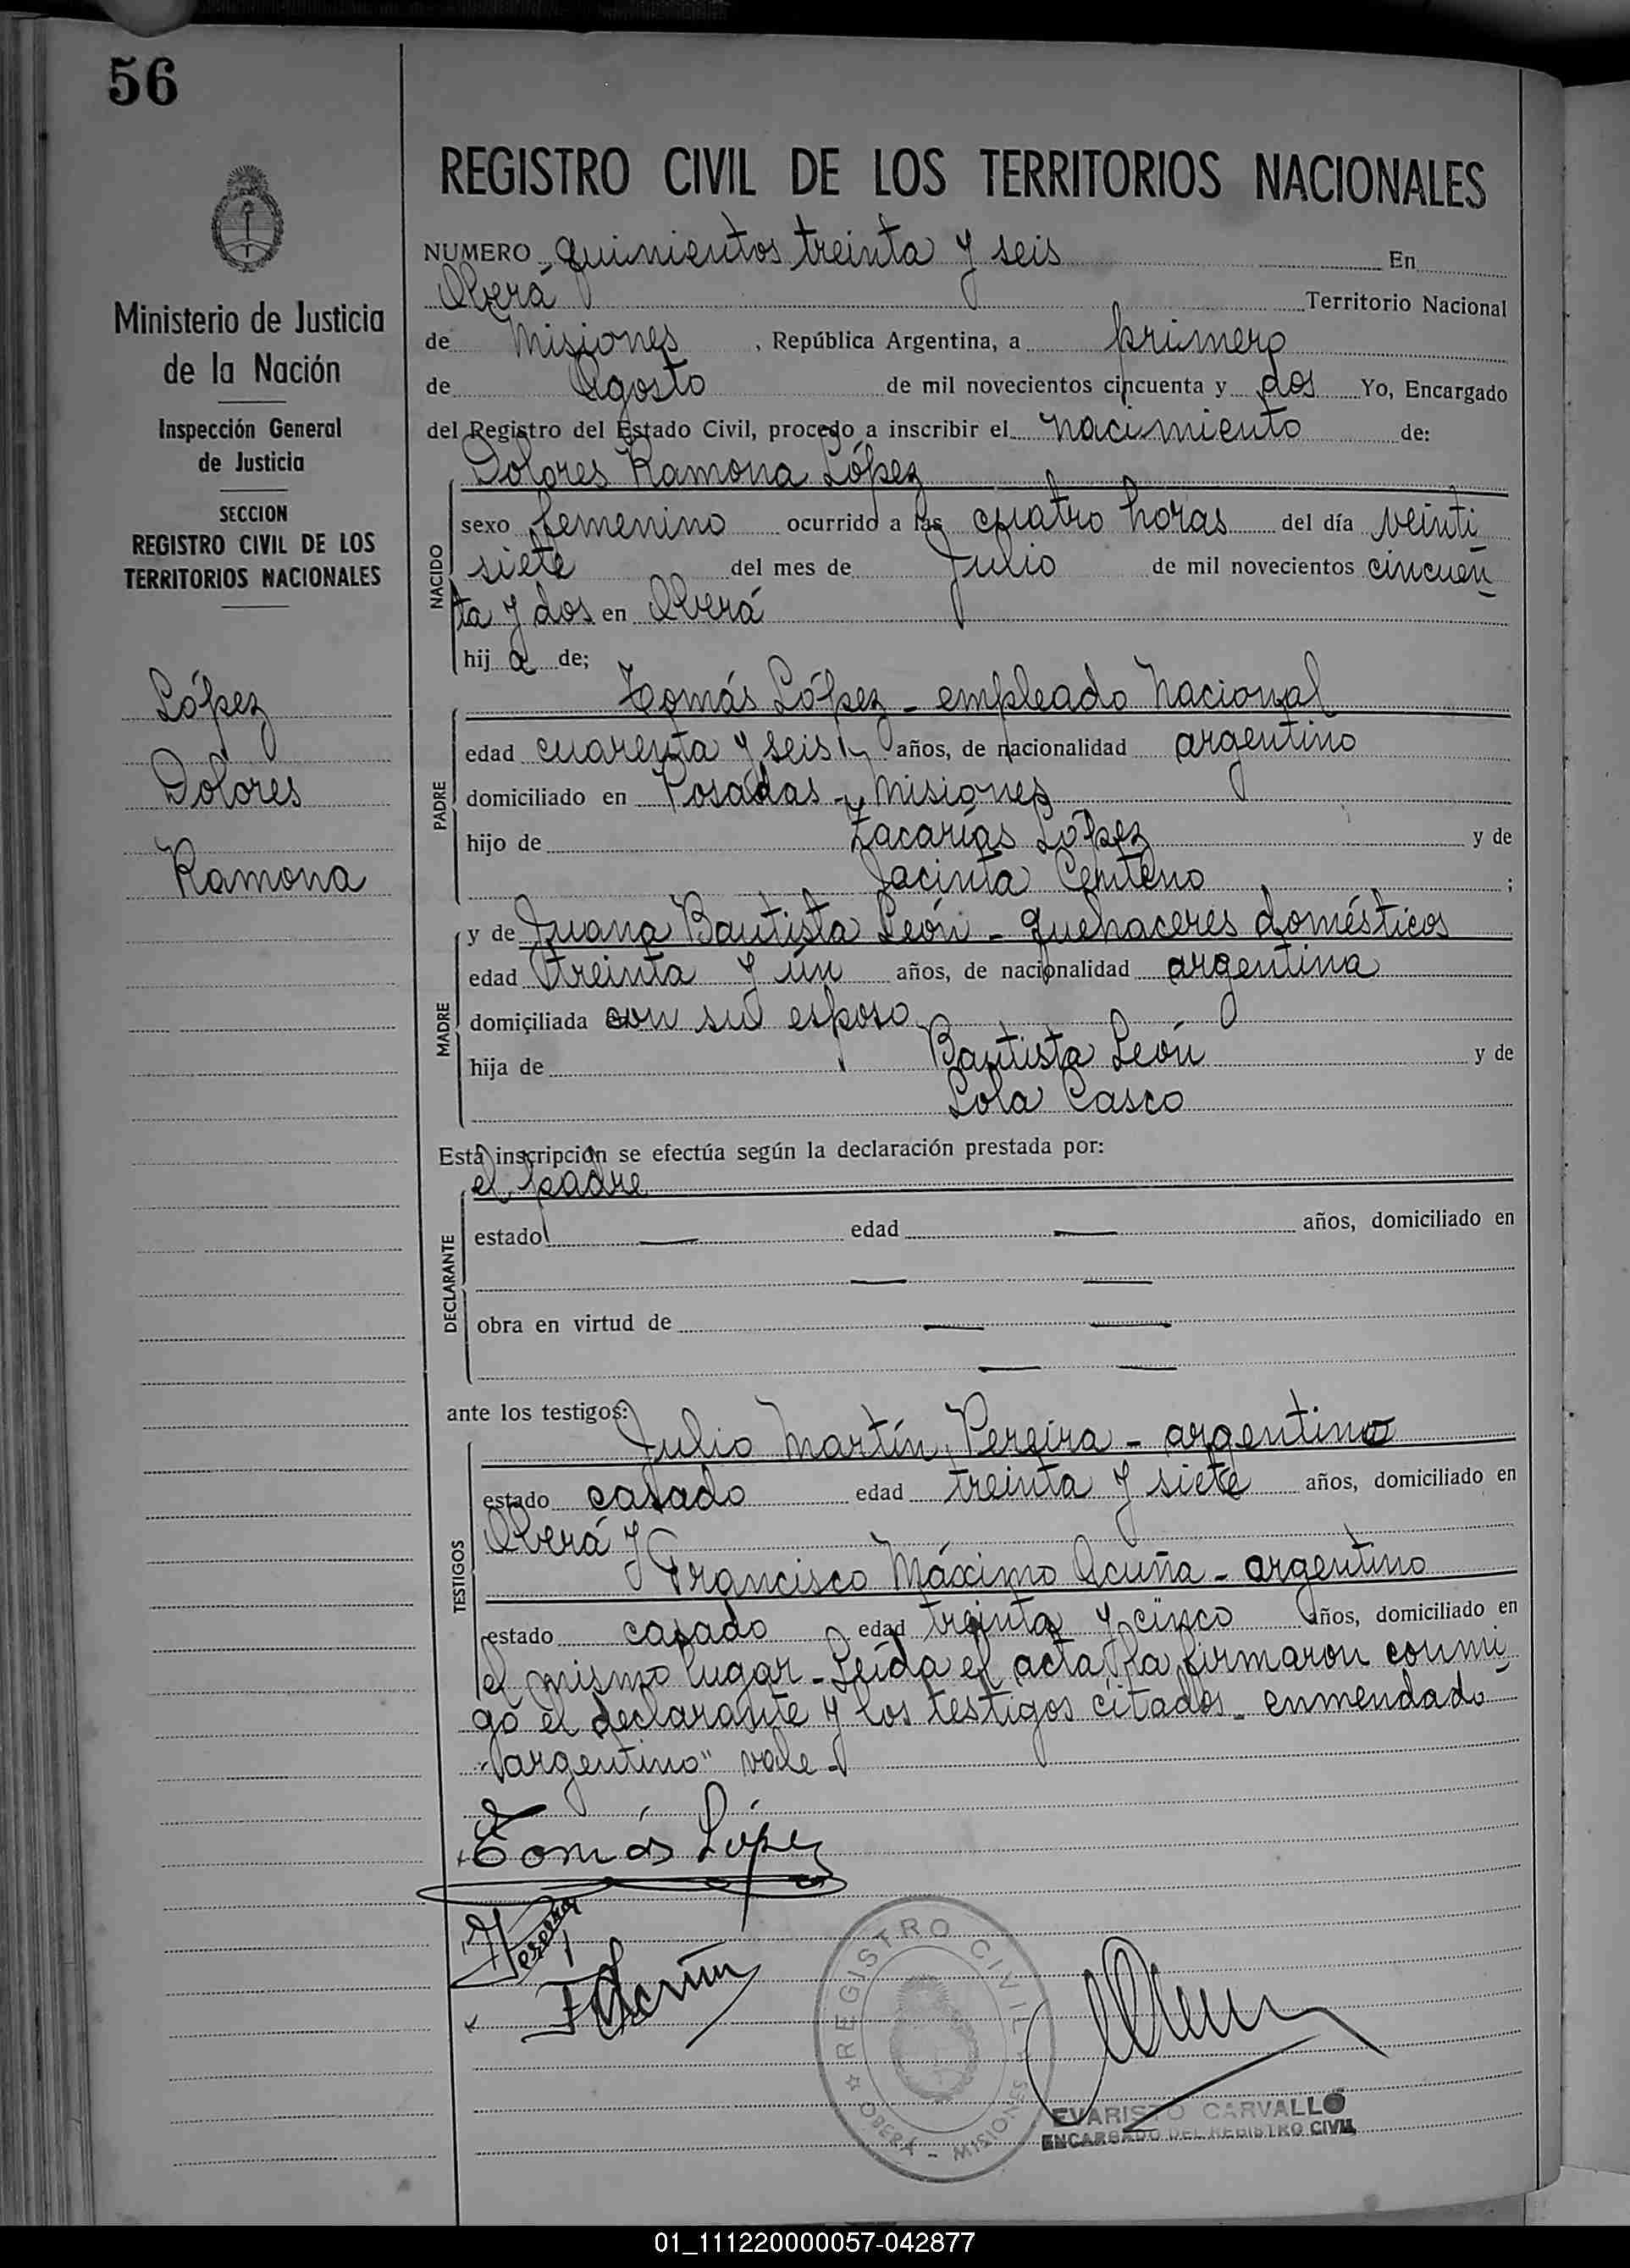 56
REGISTRO CIVIL DE LOS TERRITORIOS NACIONALES
Ministerio de Justicia
de la Nación
Inspección General
de Justicia
SECCION
REGISTRO CIVIL DE LOS
TERRITORIOS NACIONALES
López
Dolores
Ramona
NUMERO quinientos treinta y seis En
Oberá Territorio Nacional
de Misiones, República Argentina, a primero
de Agosto de mil novecientos cincuenta y dos Yo, Encargado
del Registro del Estado Civil, procedo a inscribir el nacimiento de:
Dolores Ramona López
NACIDO
sexo femenino ocurrido a las cuatro horas del día veinti
siete del mes de Julio de mil novecientos cincuen
ta y dos en Oberá
hij a de;
Tomás López - empleado Nacional
PADRE
edad cuarenta y seis años, de nacionalidad argentino
domiciliado en Posadas - Misiones
hijo de Zacarías López y de
Jacinta Centeno ;
MADRE
y de Juana Bautista León - quehaceres domésticos
edad treinta y ún años, de nacionalidad argentina
domiciliada con su esposo
hija de Bautista León y de
Lola Casco
Esta inscripción se efectúa según la declaración prestada por:
el padre
DECLARANTE
estado — edad — años, domiciliado en
— —
obra en virtud de — —
— —
ante los testigos:
Julio Martín Pereira - argentino
TESTIGOS
estado casado edad treinta y siete años, domiciliado en
Oberá y
Francisco Máximo Acuña - argentino
estado casado edad treinta y cinco años, domiciliado en
el mismo lugar - Leída el acta la firmaron conmi
go el declarante y los testigos citados - enmendado
"argentino" vale -
Tomás López
Pereira
F Acuña
REGISTRO CIVIL
OBERÁ - MISIONES
EVARISTO CARVALLO
ENCARGADO DEL REGISTRO CIVIL
01_111220000057-042877